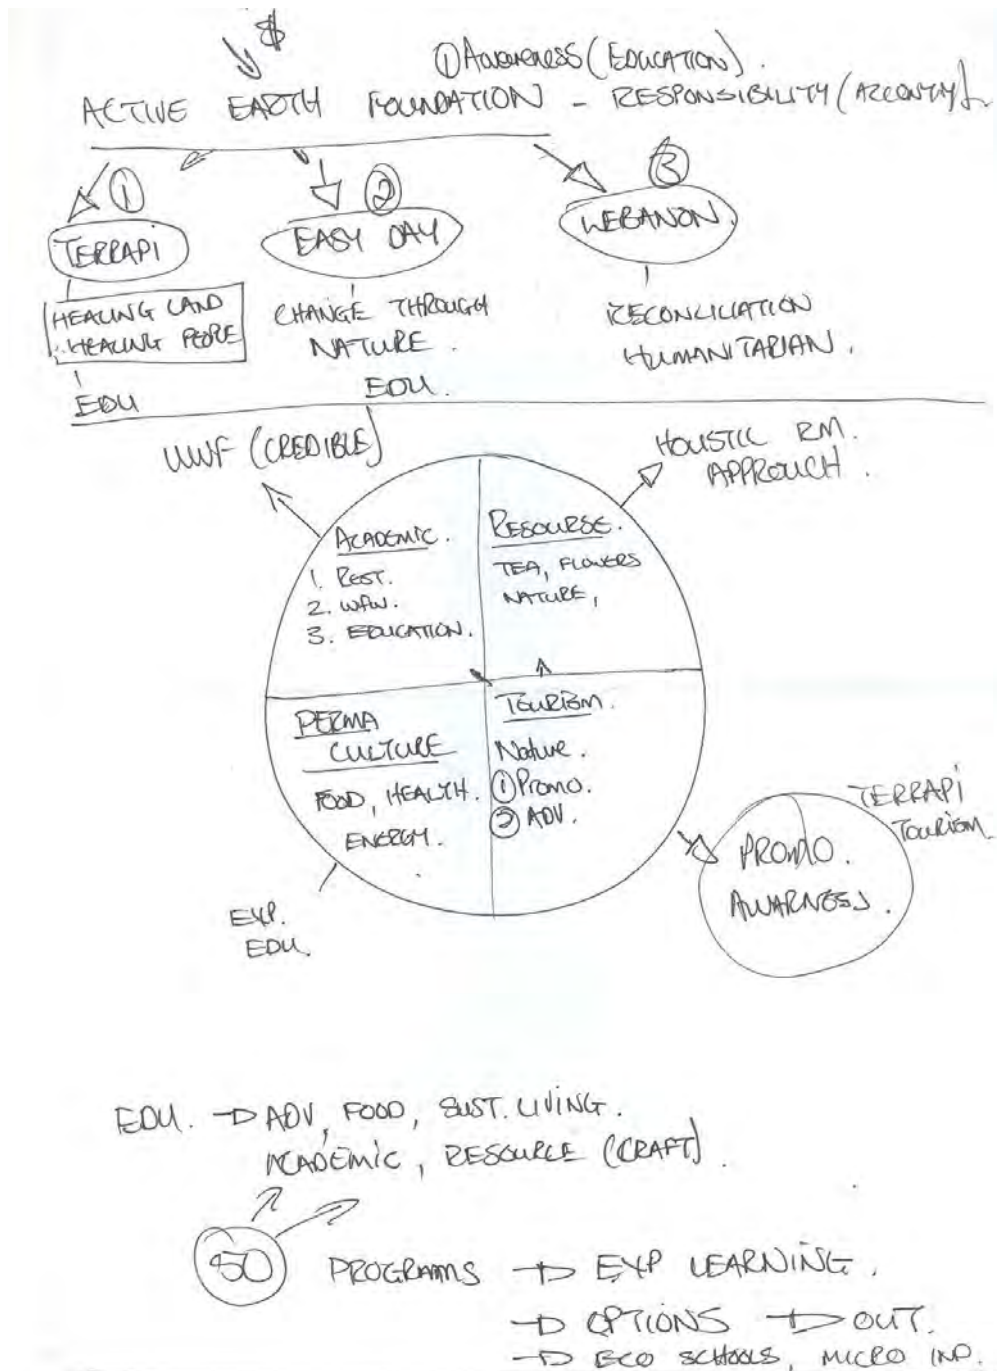 $
① AWARENESS (EDUCATION).
ACTIVE EARTH FOUNDATION - RESPONSIBILITY
① ② ③
TERRAPI
EASY DAY
LEBANON.
HEALING LAND
∴ HEALING PEOPLE
EDU
CHANGE THROUGH
NATURE.
EDU.
RECONCILIATION
HUMANITARIAN.
WWF (CREDIBLE)
HOLISTIC RM.
APPROUCH.
ACADEMIC.
1. REST.
2.
3. EDUCATION.
RESOURSE.
TEA, FLOWERS
NATURE,
PERMA
CULTURE
FOOD, HEALTH.
ENERGY.
TOURISM.
Nature.
① PROMO.
② ADV.
EXP.
EDU.
TERRAPI
TOURISM
PROMO.
AWARNESS.
EDU. → ADV, FOOD, SUST. LIVING.
ACADEMIC, RESOURCE (CRAFT).
50 PROGRAMS → EXP LEARNING.
→ OPTIONS → OUT.
→ ECO SCHOOLS, MICRO IND.